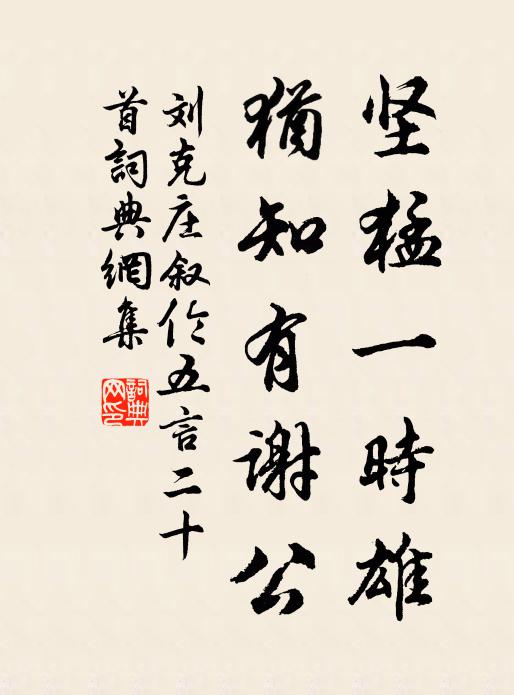 坚猛一時雄
猶知有謝公
刘克庄叙伦五言二十
首詞典網集
詞典网印